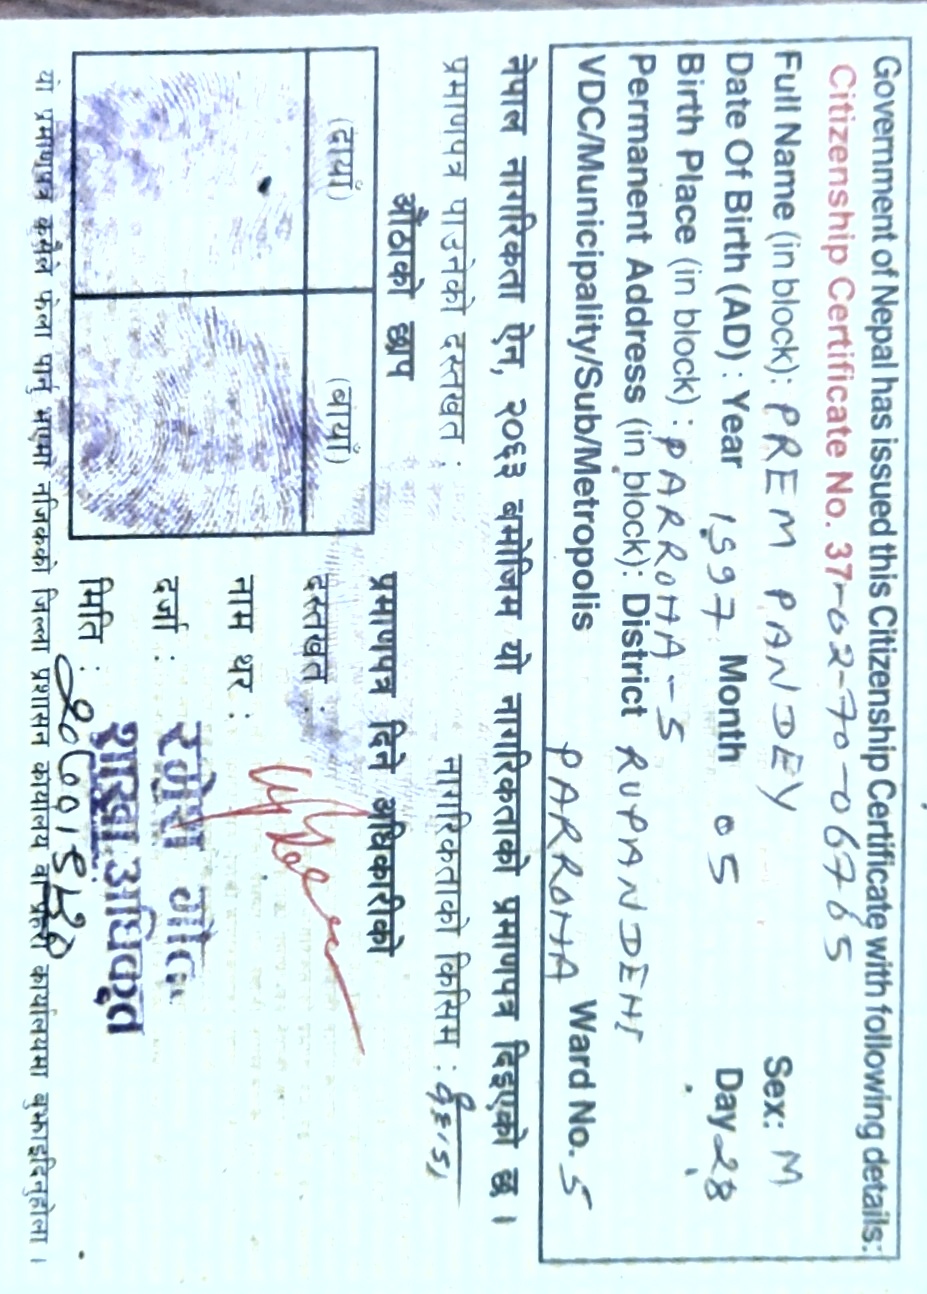 Government of Nepal has issued this Citizenship Certificate with following details:
Citizenship Certificate No. 37-02-70-06765
Full Name (in block): PREM PANDEY Sex: M
Date Of Birth (AD) : Year 1997 Month 05 Day 28
Birth Place (in block) : PARROHA-5
Permanent Address (in block): District RUPANDEHI
VDC/Municipality/Sub/Metropolis PARROHA Ward No. 5
नेपाल नागरिकता ऐन, २०६३ बमोजिम यो नागरिकताको प्रमाणपत्र दिइएको छ ।
प्रमाणपत्र पाउनेको दस्तखत : नागरिकताको किसिम :
औंठाको छाप
(दायाँ) (बायाँ)
प्रमाणपत्र दिने अधिकारीको
दस्तखत :
नाम थर :
रमेश
दर्जा :
शाखा अधिकृत
मिति :
यो प्रमाणपत्र कसैले फेला पार्नु भएमा नजिकको जिल्ला प्रशासन कार्यालय वा प्रहरी कार्यालयमा बुझाइदिनुहोला ।